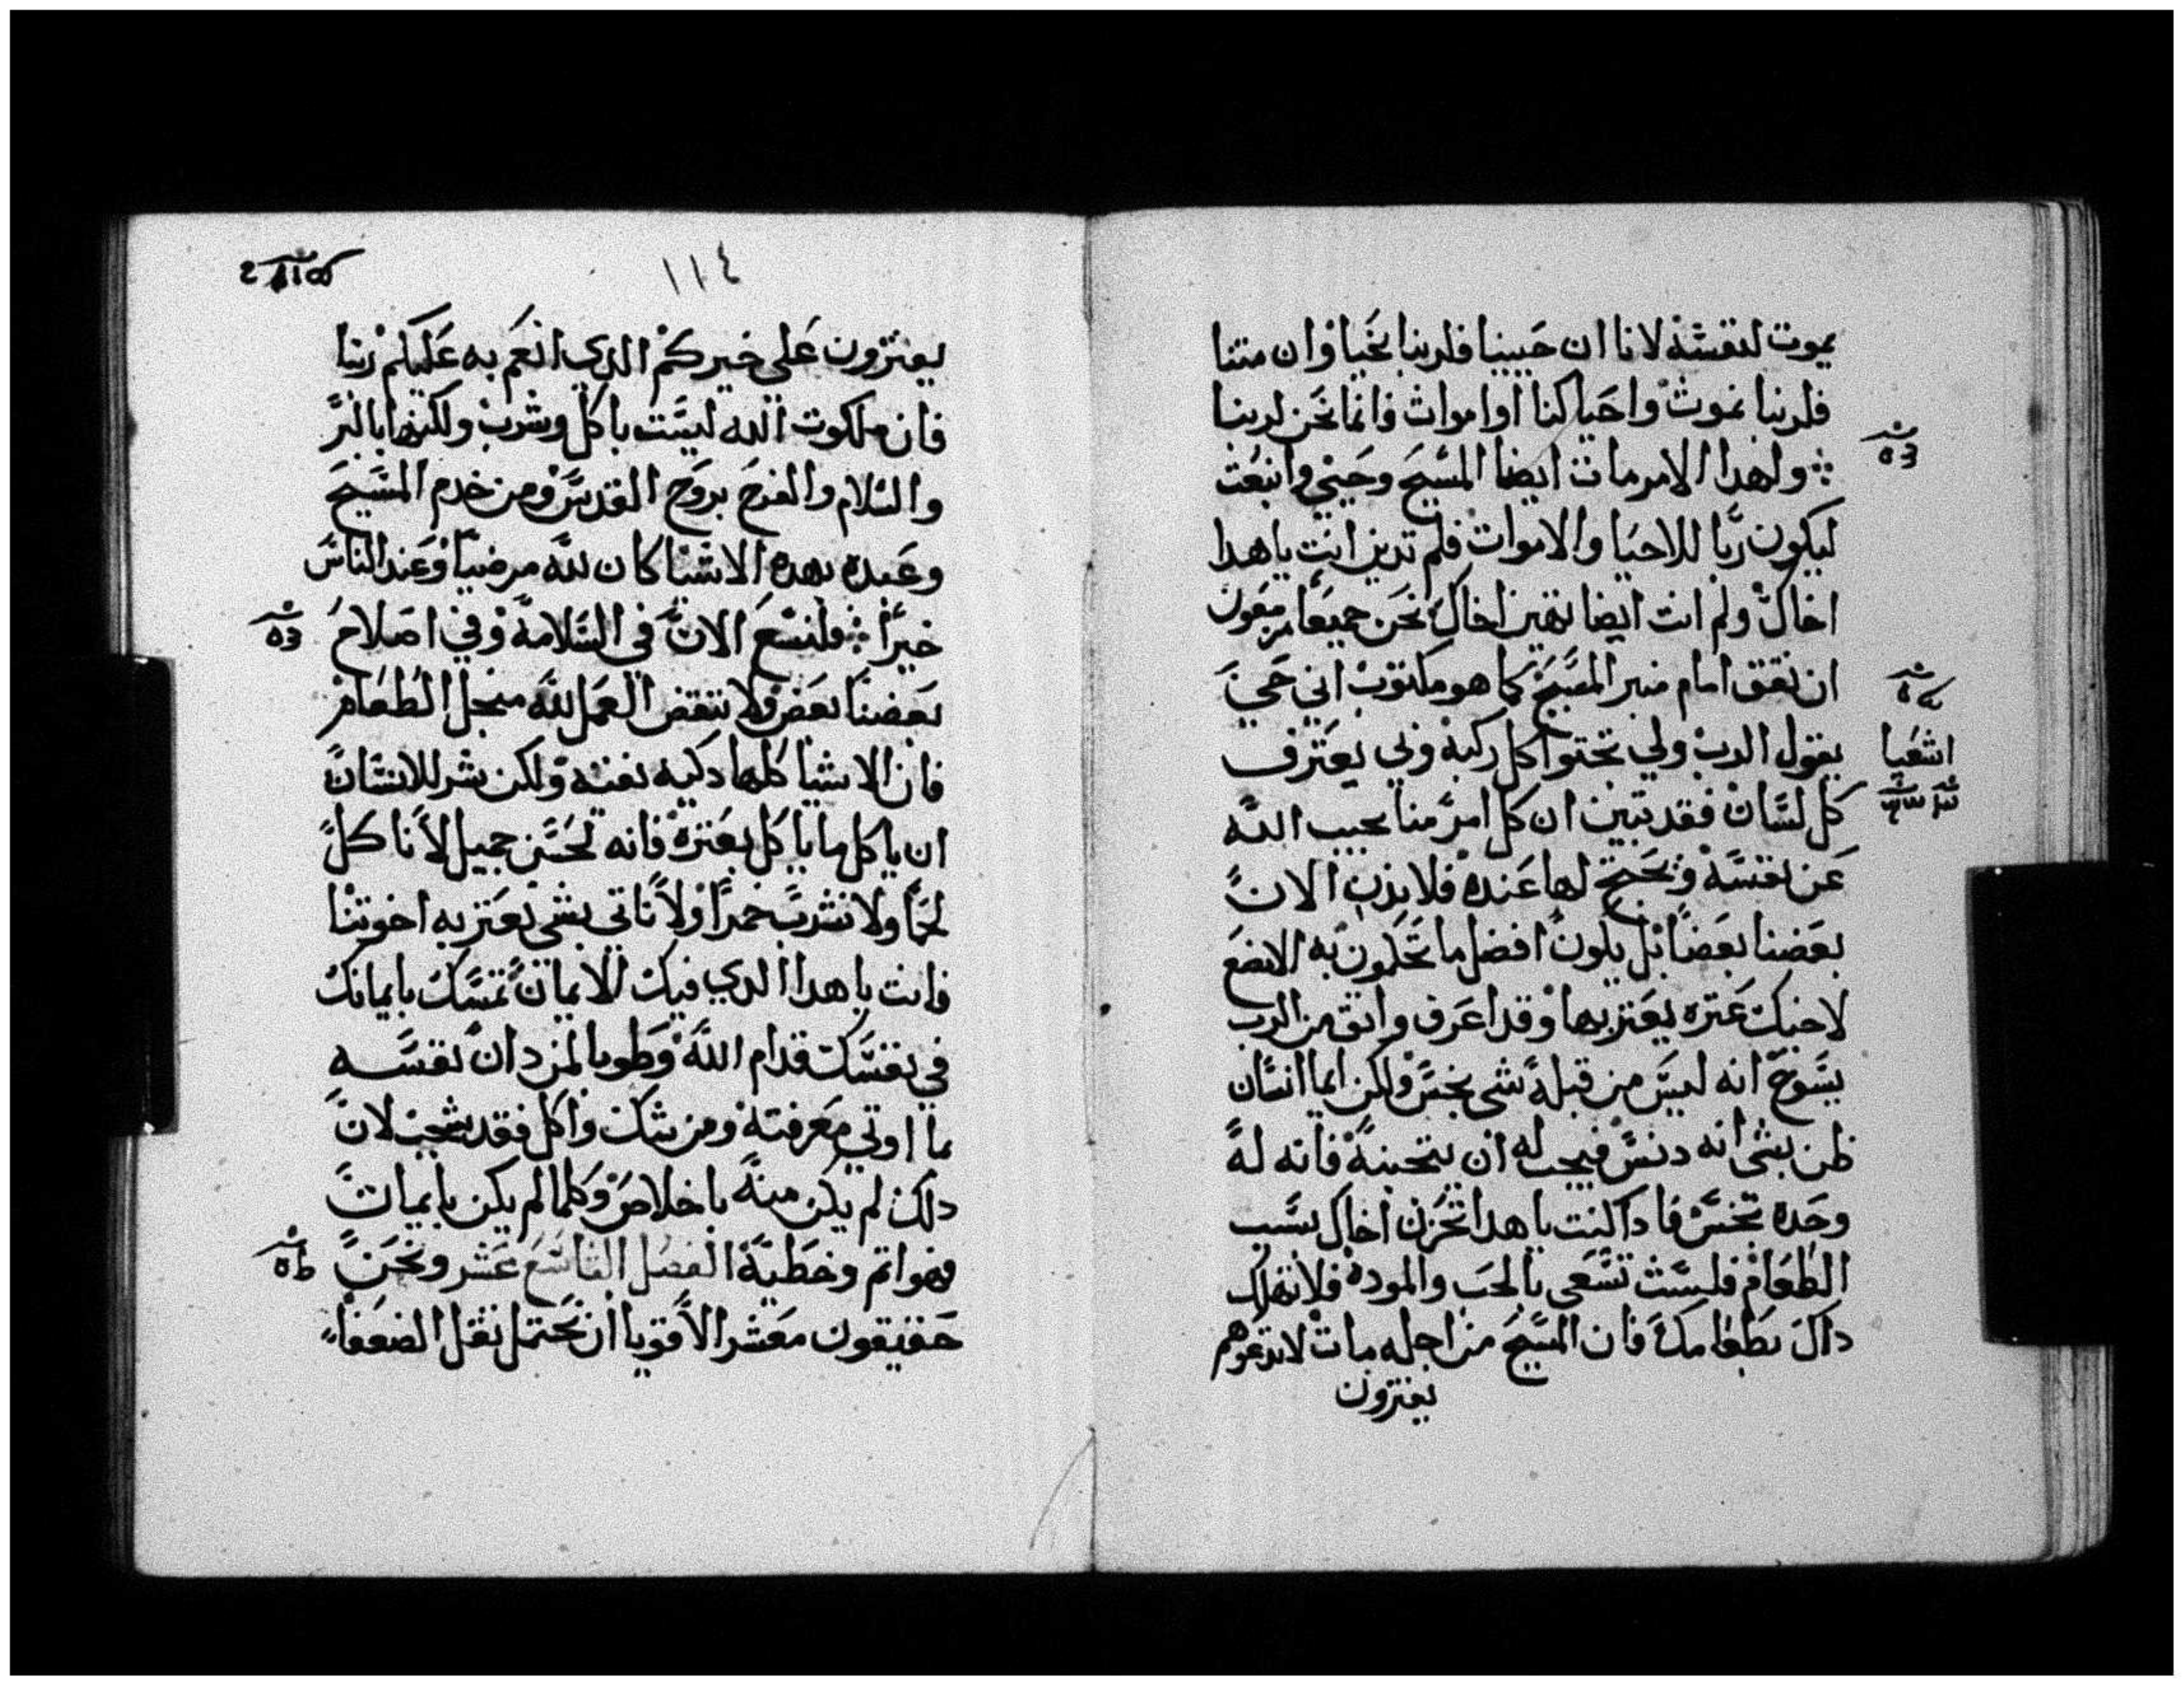 يموت لنفسه لانا ان حيينا فلربنا نحيا وان متنا
فلربنا نموت واحيا كنا او اموات فانما نحن لربنا
ولهدا الامر مات ايضا المسيح وحيي وانبعث
ليكون ربا للاحيا والاموات فلم تدين انت ياهدا
اخاك ولم انت ايضا تهين اخاك نحن جميعا مزمعون
ان نقف امام منبر المسيح كما هو مكتوب اني حي
اشعيا
يقول الرب ولي تجتوا كل ركبة وبي يعترف
كل لسان فقد تبين ان كل امر منا يجيب الله
عن نفسه ويحتج لها عنده فلا يدن الان
بعضنا بعضا بل يكون افضل ما تحكمون به الا نضع
لاخيك عتره يعتر بها وقد اعرف واثق من الرب
يسوع انه ليس من قبله شي نجس ولكن ايما انسان
ظن بشي انه دنس فيجب له ان يتجنبه فانه له
وحده نجس فادا كنت ياهدا تحزن اخاك بسبب
الطعام فلست تسعى بالحب والموده فلا تهلك
داك بطعامك فان المسيح من اجله مات لا تدعوهم
يفترون
١١٤
يفترون على خيركم الدي انعم به عليكم ربنا
فان ملكوت الله ليست باكل وشرب ولكنها بالبر
والسلام والفرح بروح القدس ومن خدم المسيح
وعبده بهده الاشيا كان لله مرضيا وعند الناس
خيرا فلنسع الان في السلامة وفي اصلاح
بعضنا بعض ولا تنقض العمل لله من اجل الطعام
فان الاشيا كلها دكيه نقيه ولكن شر للانسان
ان ياكل ما ياكل بعتره فانه لحسن جميل الا ناكل
لحما ولا نشرب خمرا ولا ناتي بشي يعتر به اخوتنا
فانت ياهدا الدي فيك الايمان تمسك بايمانك
في نفسك قدام الله وطوبا لمن دان نفسه
بما اوتي معرفته ومن شك واكل فقد شجب لان
دلك لم يكن منه باخلاص وكلما لم يكن بايمان
فهو اتم وخطية الفصل التاسع عشر ونحن
حقيقون معشر الاقويا ان نحتمل ثقل الضعفا